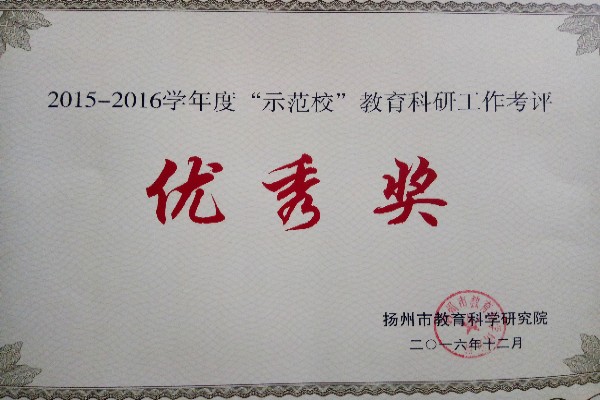 2015-2016学年度“示范校”教育科研工作考评
优秀奖
扬州市教育科学研究院
二〇一六年十二月